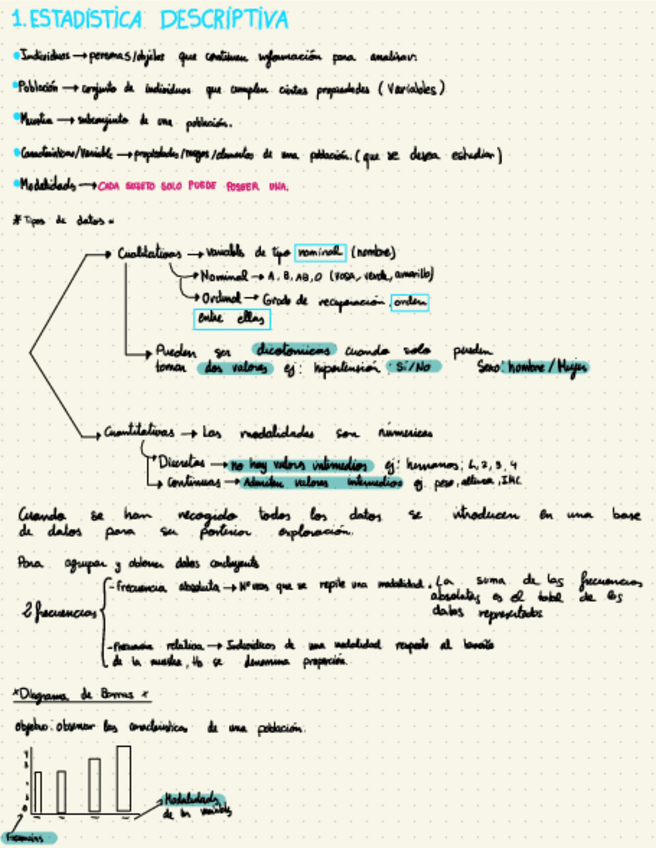 1. ESTADÍSTICA DESCRIPTIVA
• Individuos → personas/objetos que contienen información para analizar.
• Población → conjunto de individuos que cumplen ciertas propiedades (Variables)
• Muestra → subconjunto de una población.
• Características/Variable → propiedades/rasgos/elementos de una población. (que se desea estudiar)
• Modalidades → CADA SUJETO SOLO PUEDE POSEER UNA.
* Tipos de datos
Cualitativas → Variables de tipo nominal (nombre)
Nominal → A, B, AB, O (rosa, verde, amarillo)
Ordinal → Grado de recuperación orden
entre ellas
Pueden ser dicotomicas cuando solo pueden
tomar dos valores ej: hipertensión: Si/No Sexo: hombre / Mujer
Cuantitativas → Las modalidades son númericas
Discretas → no hay valores intermedios ej: hermanos; 1, 2, 3, 4
Continuas → Admiten valores intermedios ej. peso, altura, IMC
Cuando se han recogido todos los datos se introducen en una base
de datos para su porterior exploración.
Para agrupar y obtener datos concluyents
2 frecuencias
- Frecuencia absoluta → Nº veces que se repite una modalidad. La suma de las frecuencias
absolutas es el total de los
datos representados
- Frecuencia relativa → Individuos de una modalidad respecto al tamaño
de la muestra, se denomina proporción.
* Diagrama de Barras *
Objetivo: observar las características de una población.
Modalidades
de la variable
Frecuencias